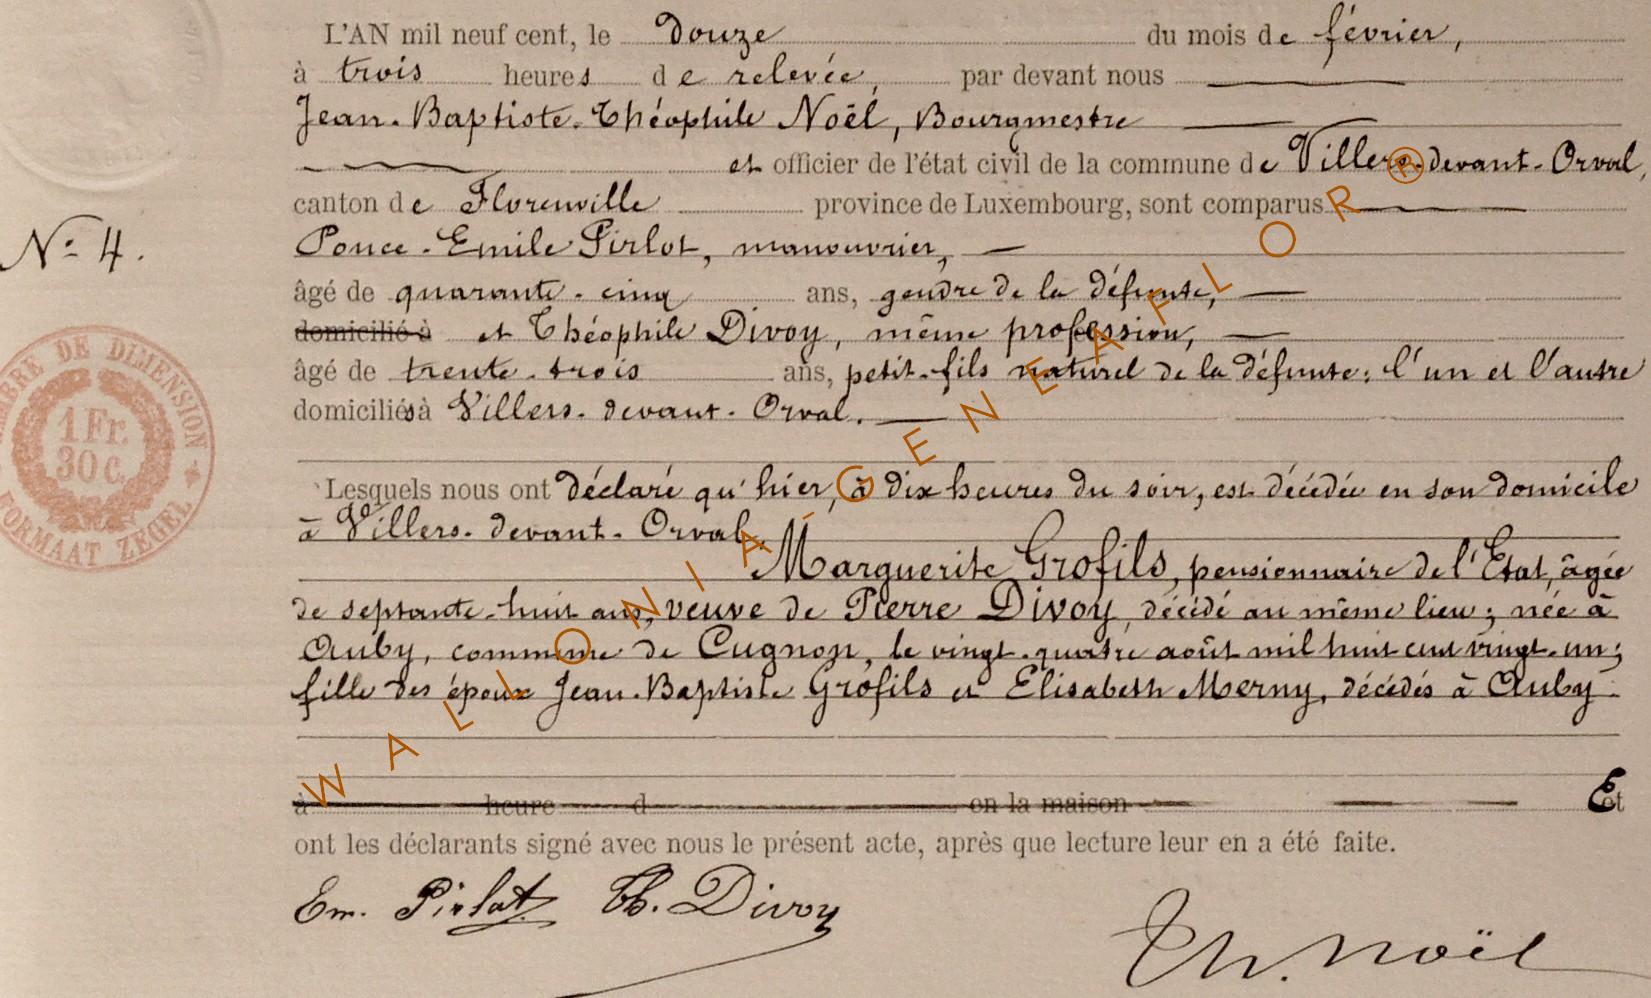 L'AN mil neuf cent, le douze du mois de février,
à trois heures de relevée, par devant nous
Jean-Baptiste-Théophile Noël, Bourgmestre
et officier de l'état civil de la commune de Villers-devant-Orval,
canton de Florenville province de Luxembourg, sont comparus
N° 4.
Ponce-Emile Pirlot, manouvrier,
âgé de quarante-cinq ans, gendre de la défunte,
domicilié à et Théophile Divoy, même profession,
âgé de trente-trois ans, petit-fils naturel de la défunte; l'un et l'autre
domiciliés à Villers-devant-Orval.
TIMBRE DE DIMENSION
1 Fr.
30 c.
FORMAAT ZEGEL
Lesquels nous ont déclaré qu'hier, à dix heures du soir, est décédée en son domicile
à Villers-devant-Orval
Marguerite Grofils, pensionnaire de l'Etat, âgée
de septante-huit ans, veuve de Pierre Divoy, décédé au même lieu; née à
Auby, commune de Cugnon, le vingt-quatre août mil huit cent vingt-un;
fille des époux Jean-Baptiste Grofils et Elisabeth Merny, décédés à Auby.
à heure d en la maison Et
ont les déclarants signé avec nous le présent acte, après que lecture leur en a été faite.
Em. Pirlot Th. Divoy
Th. Noël
WALLONIA-GENEAFLOR®